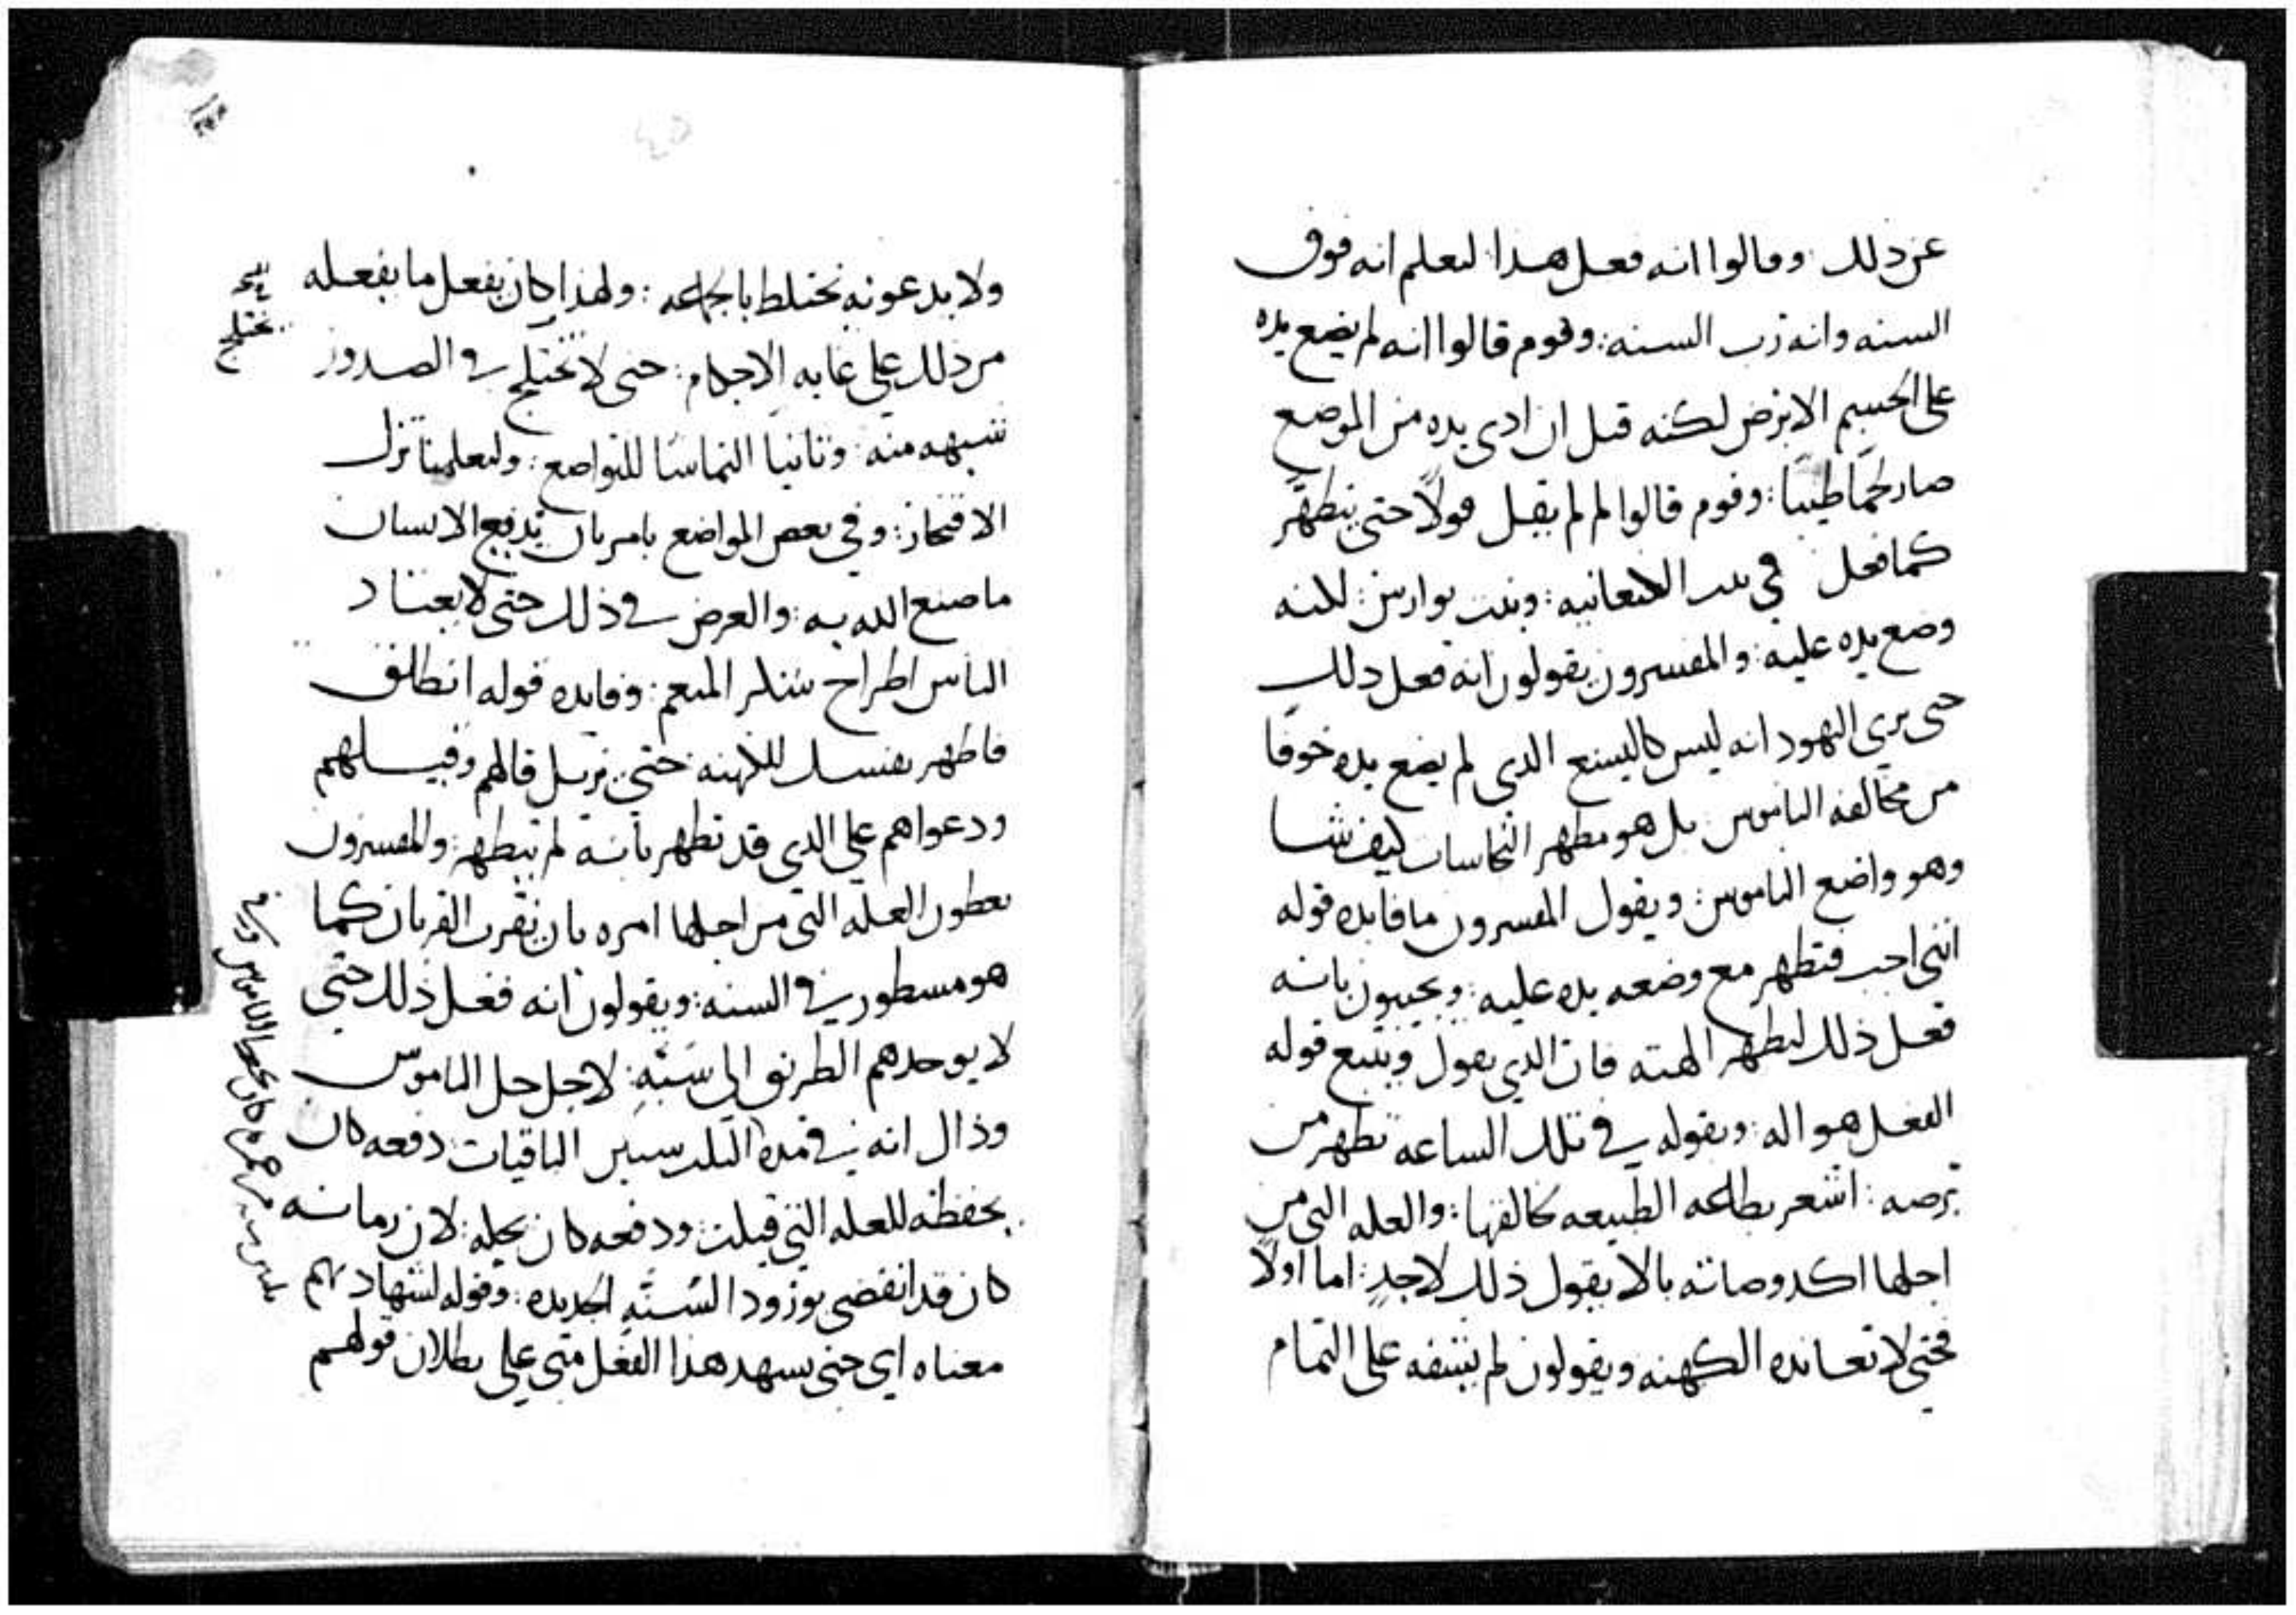 عن ذلك وقالوا انه فعل هذا ليعلم انه فوق
السنه وانه رب السنه: وقوم قالوا انه لم يضع يده
على الجسم الابرص لكنه قبل ان ادنى يده من الموضع
صار لحمًا طيبًا: وقوم قالوا لم لم يقبل قولًا حتى يتطهر
كما فعل في بنت الكنعانيه: وبنت يوارش: لكنه
وضع يده عليه: والمفسرون يقولون انه فعل ذلك
حتى يري اليهود انه ليس كاليسع الذي لم يضع يده خوفا
من مخالفه الناموس بل هو مطهر النجاسات كيف شا
وهو واضع الناموس: ويقول المفسرون ما فايده قوله
انني احب فتطهر مع وضعه يده عليه: ويجيبون بانه
فعل ذلك ليظهر الهته فان الذي يقول ويتبع قوله
الفعل هو اله: وبقوله في تلك الساعه تطهر من
برصه: اشعر بطاعه الطبيعه لخالقها: والعله التي من
اجلها اكد وصاته بالا يقول ذلك لاحدٍ: اما اولًا
فحتى لا تعانده الكهنه ويقولون لم يشفه على التمام
ولا يدعونه يختلط بالجماعه: ولهذا كان يفعل ما يفعله
من ذلك على غايه الاحكام: حتى لا تختلج في الصدور
شبهه منه: وثانيا التماسًا للتواضع: وليعلمنا ترك
الافتخار: وفي بعض المواضع يامر بان يذيع الانسان
ما صنع الله به: والغرض في ذلك حتى لا يعتاد
الناس اطراح شكر المنعم: وفايده قوله انطلق
فاظهر نفسك للكهنه حتى يزيل قالهم وقيلهم
ودعواهم على الذي قد تطهر بانه لم يتطهر: والمفسرون
يعطون العله التي من اجلها امره بان يقرب القربان كما
هو مسطور في السنه: ويقولون انه فعل ذلك حتى
لا يوجدهم الطريق الى سَبِّهِ: لاجل حل الناموس
وذاك انه في مده الثلث سنين الباقيات دفعه كان
يحفظه للعله التي قيلت ودفعه كان يحله: لان زمانه
كان قد انقضى بورود السُنَّهِ الجديده: وقوله لشهادتهم
معناه اي حتى يشهد هذا الفعل مني على بطلان قولهم
تختلج